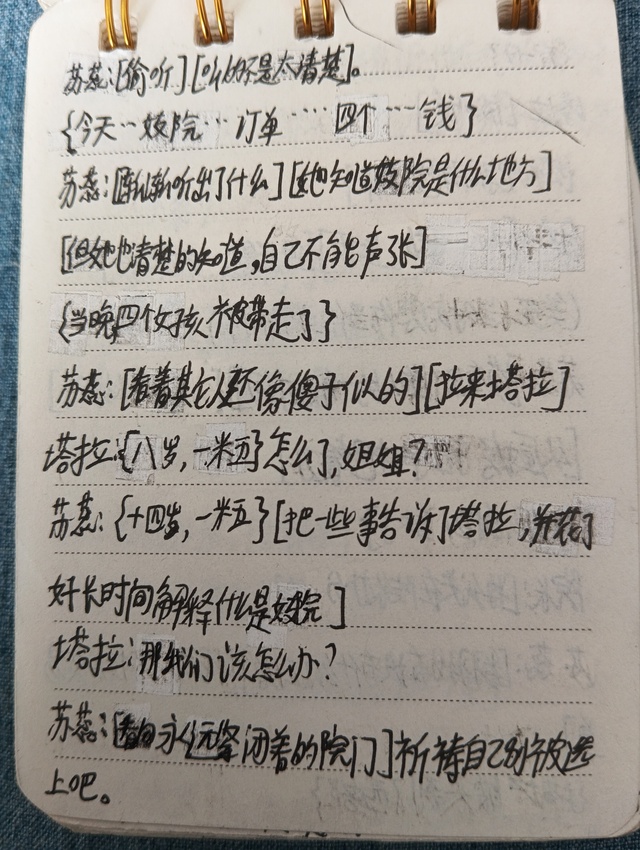 苏蕊:[偷听][听的不是太清楚]。
{今天…妓院…订单…四个…钱}
苏蕊:[渐渐听出了什么][她知道妓院是什么地方]
[但她也清楚的知道,自己不能声张]
{当晚,四个女孩被带走了}
苏蕊:[看着其它人还像傻子似的][拉来塔拉]
塔拉:{八岁,一米五}怎么了,姐姐?
苏蕊:{十四岁,一米五}[把一些事告诉了塔拉,并花了
好长时间解释什么是妓院]
塔拉:那我们该怎么办?
苏蕊:[看向永远紧闭着的院门]祈祷自己别被选
上吧。